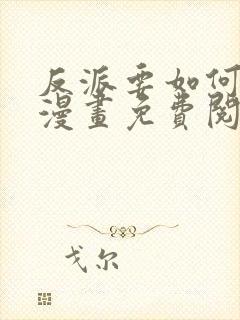 反派要如何
漫畫免費閱
戈尔